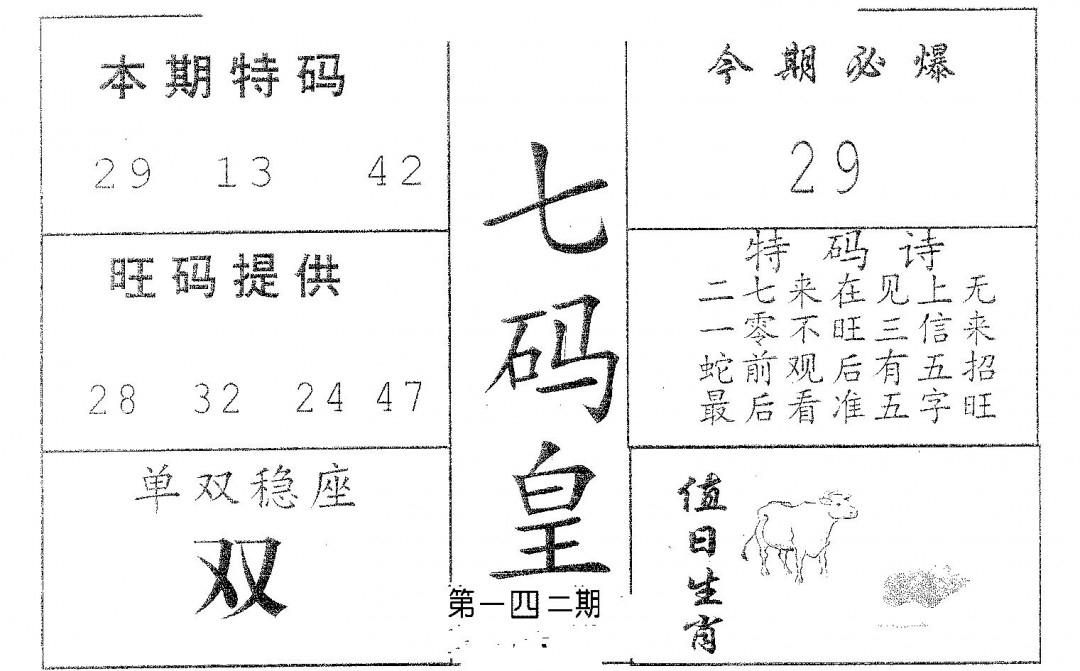 本期特码
29 13 42
旺码提供
28 32 24 47
单双稳座
双
七码皇
第一四二期
今期必爆
29
特码诗
二七来在见上无
一零不旺三信来
蛇前观后有五招
最后看准五字旺
值日生肖